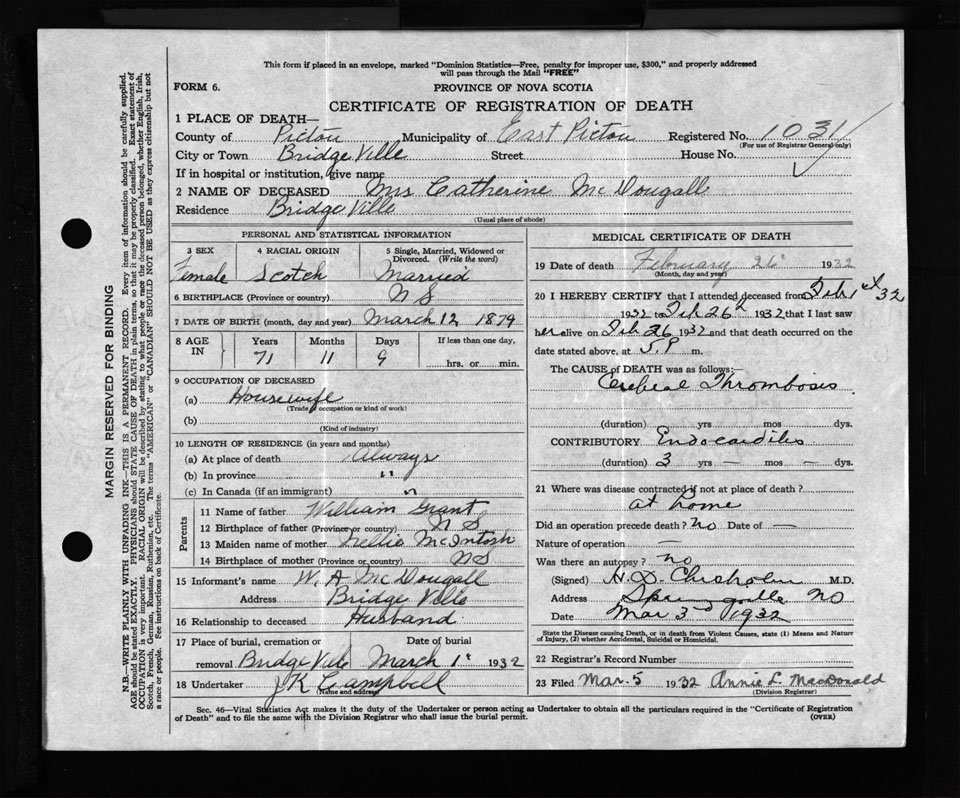 This form if placed in an envelope, marked "Dominion Statistics—Free, penalty for improper use, $300," and properly addressed
will pass through the Mail "FREE"
FORM 6.
PROVINCE OF NOVA SCOTIA
CERTIFICATE OF REGISTRATION OF DEATH
1 PLACE OF DEATH—
County of Pictou Municipality of East Pictou Registered No. 1031
(For use of Registrar General only)
City or Town BridgeVille Street House No.
If in hospital or institution, give name
2 NAME OF DECEASED Mrs Catherine McDougall
Residence BridgeVille
(Usual place of abode)
PERSONAL AND STATISTICAL INFORMATION
3 SEX 4 RACIAL ORIGIN 5 Single, Married, Widowed or
Divorced. (Write the word)
Female Scotch Married
6 BIRTHPLACE (Province or country) N S
7 DATE OF BIRTH (month, day and year) March 12 1879
8 AGE IN Years Months Days If less than one day,
71 11 9 hrs. or min.
9 OCCUPATION OF DECEASED
(a) Housewife
(Trade occupation or kind of work)
(b)
(Kind of industry)
10 LENGTH OF RESIDENCE (in years and months)
(a) At place of death Always
(b) In province "
(c) In Canada (if an immigrant) "
Parents
11 Name of father William Grant
12 Birthplace of father (Province or country) N S
13 Maiden name of mother Nellie McIntosh
14 Birthplace of mother (Province or country) NS
15 Informant's name W. A McDougall
Address BridgeVille
16 Relationship to deceased Husband
17 Place of burial, cremation or Date of burial
removal BridgeVille March 1st 1932
18 Undertaker J K Campbell
(Name and address)
MEDICAL CERTIFICATE OF DEATH
19 Date of death February 26 1932
(Month, day and year)
20 I HEREBY CERTIFY that I attended deceased from Feb 1st 32
1932 to Feb 26th 1932 that I last saw
her alive on Feb 26 1932 and that death occurred on
date stated above, at 5.P m.
The CAUSE of DEATH was as follows:—
Cerebral Thrombosis
(duration) yrs mos dys.
CONTRIBUTORY Endocarditis
(duration) 3 yrs — mos — dys.
21 Where was disease contracted if not at place of death?
at home
Did an operation precede death? no Date of —
Nature of operation —
Was there an autopsy? no
(Signed) H. D. Chisholm M.D.
Address Springville NS
Date Mar 3rd 1932
State the Disease causing Death, or in death from Violent Causes, state (1) Means and Nature
of Injury, (2) whether Accidental, Suicidal or Homicidal.
22 Registrar's Record Number
23 Filed Mar. 5 1932 Annie L. MacDonald
(Division Registrar)
Sec. 46—Vital Statistics Act makes it the duty of the Undertaker or person acting as Undertaker to obtain all the particulars required in the "Certificate of Registration
of Death" and to file the same with the Division Registrar who shall issue the burial permit.
(OVER)
MARGIN RESERVED FOR BINDING
N.B.—WRITE PLAINLY WITH UNFADING INK—THIS IS A PERMANENT RECORD. Every item of information should be carefully supplied.
AGE should be stated EXACTLY. PHYSICIANS should STATE CAUSE OF DEATH in plain terms, so that it may be properly classified. Exact statement of
OCCUPATION is very important. RACIAL ORIGIN will be described by stating to what people or race the deceased person belonged, whether English, Irish,
Scotch, French, German, Russian, Ruthenian, etc. The terms "AMERICAN" or "CANADIAN" SHOULD NOT BE USED as they express citizenship but not
a race or people. See instructions on back of Certificate.